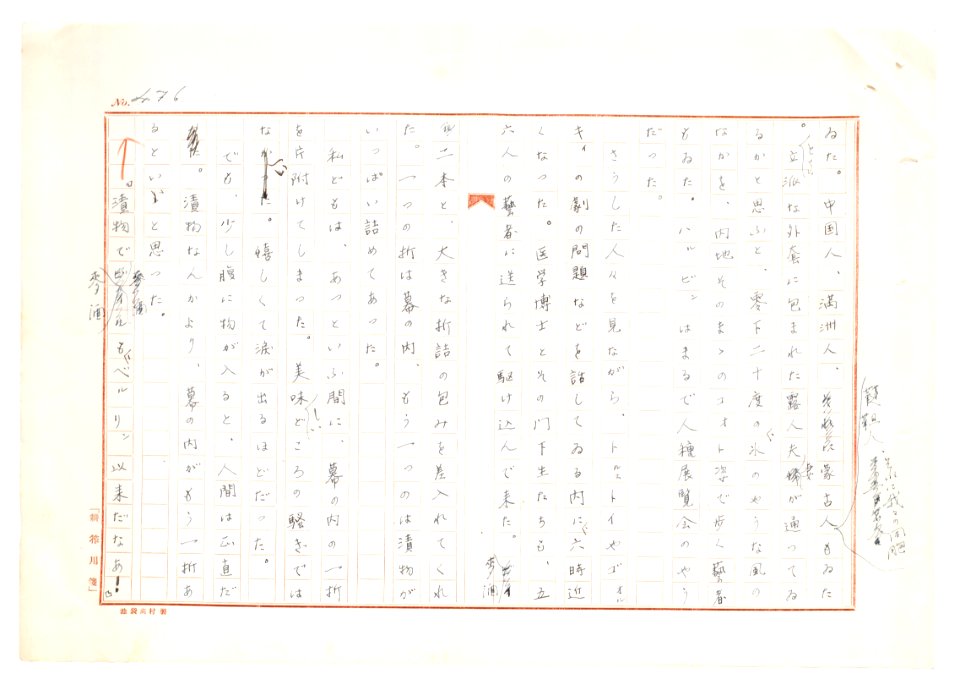 No. 476
ゐた。中国人、満洲人、蒙古人もゐた
朝鮮人、
。立派な外套に包まれた露人夫妻が通つてゐ
るかと思ふと、零下二十度の氷のやうな風の
なかを、内地そのまゝのコオト姿で歩く藝者
もゐた。ハルビンはまるで人種展覧会のやう
だつた。
さうした人々を見ながら、トルストイやゴオル
キイの劇の問題などを話してゐる内に、六時近
くなつた。医学博士とその門下生たちも、五
六人の藝者に送られて駆け込んで来た。
麦酒
半二本と、大きな折詰の包みを差入れてくれ
た。一つの折は幕の内、もう一つのは漬物が
いつぱい詰めてあつた。
私どもは、あつといふ間に、幕の内の一折
を片附けてしまつた。美味どころの騒ぎでは
なかつた。嬉しくて涙が出るほどだつた。
でも、少し腹に物が入ると、人間は正直だ
。漬物なんかより、幕の内がもう一折あ
るといゝと思つた。
「漬物で
麦酒
もベルリン以来だなあ!」